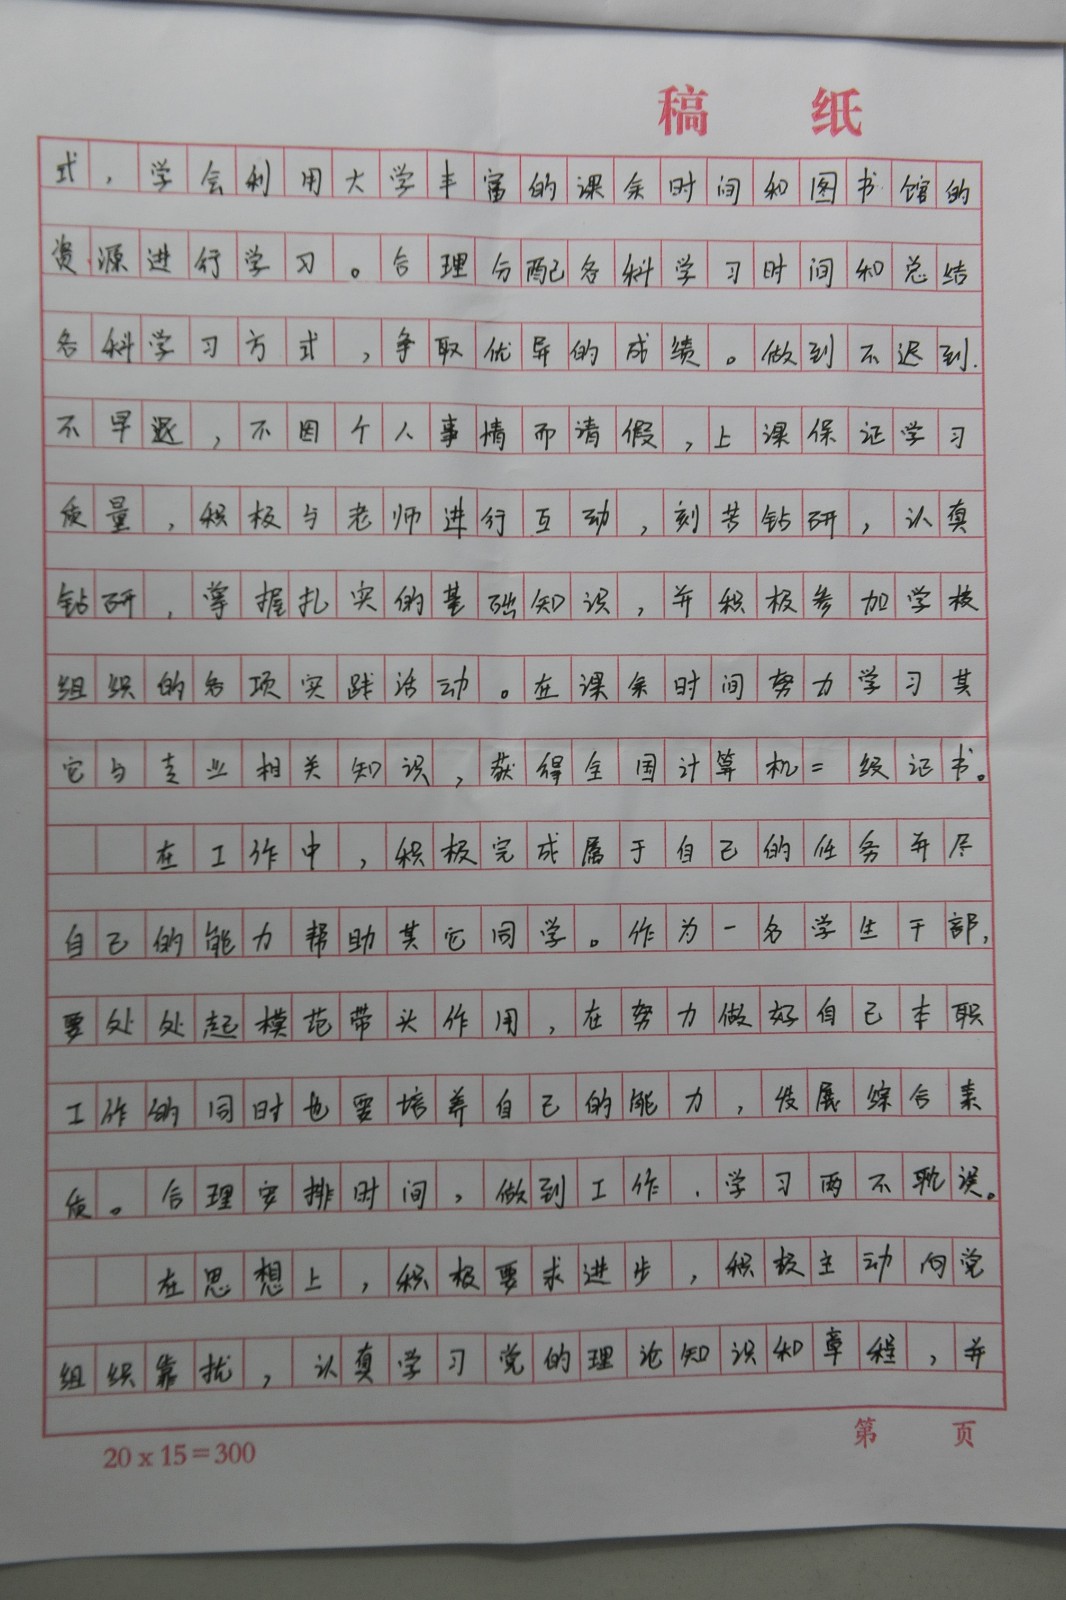 稿 纸
式，学会利用大学丰富的课余时间和图书馆的
资源进行学习。合理分配各科学习时间和总结
各科学习方式，争取优异的成绩。做到不迟到.
不早退，不因个人事情而请假，上课保证学习
质量，积极与老师进行互动，刻苦钻研，认真
钻研，掌握扎实的基础知识，并积极参加学校
组织的各项实践活动。在课余时间努力学习其
它与专业相关知识，获得全国计算机二级证书。
在工作中，积极完成属于自己的任务并尽
自己的能力帮助其它同学。作为一名学生干部，
要处处起模范带头作用，在努力做好自己本职
工作的同时也要培养自己的能力，发展综合素
质。合理安排时间，做到工作．学习两不耽误。
在思想上，积极要求进步，积极主动向党
组织靠扰，认真学习党的理论知识和章程，并
20 x 15 = 300
第 页